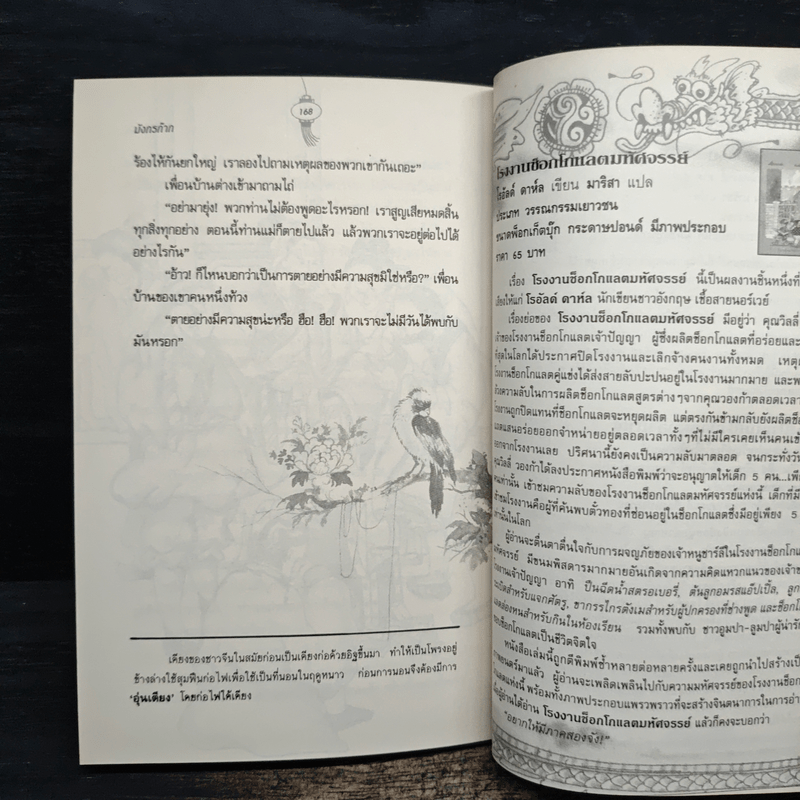 168
มังกรก๊าก
ร้องไห้กันยกใหญ่ เราลองไปถามเหตุผลของพวกเขากันเถอะ”
เพื่อนบ้านต่างเข้ามาถามไถ่
“อย่ามายุ่ง! พวกท่านไม่ต้องพูดอะไรหรอก! เราสูญเสียหมดสิ้น
ทุกสิ่งทุกอย่าง ตอนนี้ท่านแม่ก็ตายไปแล้ว แล้วพวกเราจะอยู่ต่อไปได้
อย่างไรกัน”
“อ้าว! ก็ไหนบอกว่าเป็นการตายอย่างมีความสุขมิใช่หรือ?” เพื่อน
บ้านของเขาคนหนึ่งท้วง
“ตายอย่างมีความสุขน่ะหรือ ฮือ! ฮือ! พวกเราจะไม่มีวันได้พบกับ
มันหรอก”
เตียงของชาวจีนในสมัยก่อนเป็นเตียงก่อด้วยอิฐขึ้นมา ทำให้เป็นโพรงอยู่
ข้างล่างใช้สุมฟืนก่อไฟเพื่อใช้เป็นที่นอนในฤดูหนาว ก่อนการนอนจึงต้องมีการ
‘อุ่นเตียง’ โดยก่อไฟใต้เตียง
โรงงานช็อกโกแลตมหัศจรรย์
โรอัลด์ ดาห์ล เขียน มาริสา แปล
ประเภท วรรณกรรมเยาวชน
ขนาดพ็อกเก็ตบุ๊ก กระดาษปอนด์ มีภาพประกอบ
ราคา 65 บาท
เรื่อง โรงงานช็อกโกแลตมหัศจรรย์ นี้เป็นผลงานชิ้นหนึ่งที่
เสียงให้แก่ โรอัลด์ ดาห์ล นักเขียนชาวอังกฤษ เชื้อสายนอร์เวย์
เรื่องย่อของ โรงงานช็อกโกแลตมหัศจรรย์ มีอยู่ว่า คุณวิลลี่
เจ้าของโรงงานช็อกโกแลตเจ้าปัญญา ผู้ซึ่งผลิตช็อกโกแลตที่อร่อยและ
ที่สุดในโลกได้ประกาศปิดโรงงานและเลิกจ้างคนงานทั้งหมด
โรงงานช็อกโกแลตคู่แข่งได้ส่งสายลับปะปนอยู่ในโรงงานมากมาย
ความลับในการผลิตช็อกโกแลตสูตรต่างๆจากคุณวองก้าตลอดเวลา
โรงงานถูกปิดแทนที่ช็อกโกแลตจะหยุดผลิต แต่ตรงกันข้ามกลับยังผลิต
แสนอร่อยออกจำหน่ายอยู่ตลอดเวลาทั้งๆที่ไม่มีใครเคยเห็นคน
ออกจากโรงงานเลย ปริศนานี้ยังคงเป็นความลับมาตลอด จนกระทั่งวัน
คุณวิลลี่ วองก้าได้ลงประกาศหนังสือพิมพ์ว่าจะอนุญาตให้เด็ก 5 คน...
คนเท่านั้น เข้าชมความลับของโรงงานช็อกโกแลตมหัศจรรย์แห่งนี้
เข้าชมโรงงานคือผู้ที่ค้นพบตั๋วทองที่ซ่อนอยู่ในช็อกโกแลตซึ่งมีอยู่เพียง 5
เท่านั้นในโลก
ผู้อ่านจะตื่นตาตื่นใจกับการผจญภัยของเจ้าหนูชาร์ลีในโรงงาน
มหัศจรรย์ มีขนมพิสดารมากมายอันเกิดจากความคิดแหวกแนวของ
โรงงานเจ้าปัญญา อาทิ ปืนฉีดน้ำสตรอเบอรี่, ต้นลูกอมรสแอ๊ปเปิ้ล,
ระเบิดสำหรับแจกศัตรู, ขากรรไกรตังเมสำหรับผู้ปกครองที่ช่างพูด
ล่องหนสำหรับกินในห้องเรียน รวมทั้งพบกับ ชาวอูมปา-ลูมปาผู้น่ารัก
ช็อกโกแลตเป็นชีวิตจิตใจ
หนังสือเล่มนี้ถูกตีพิมพ์ซ้ำหลายต่อหลายครั้งและเคยถูกนำไปสร้าง
ภาพยนตร์มาแล้ว ผู้อ่านจะเพลิดเพลินไปกับความมหัศจรรย์ของโรงงาน
แห่งนี้ พร้อมทั้งภาพประกอบแพรวพราวที่จะสร้างจินตนาการในการอ่าน
เมื่อผู้ได้อ่าน โรงงานช็อกโกแลตมหัศจรรย์ แล้วก็คงจะบอกว่า
“อยากให้มีภาคสองจัง!”